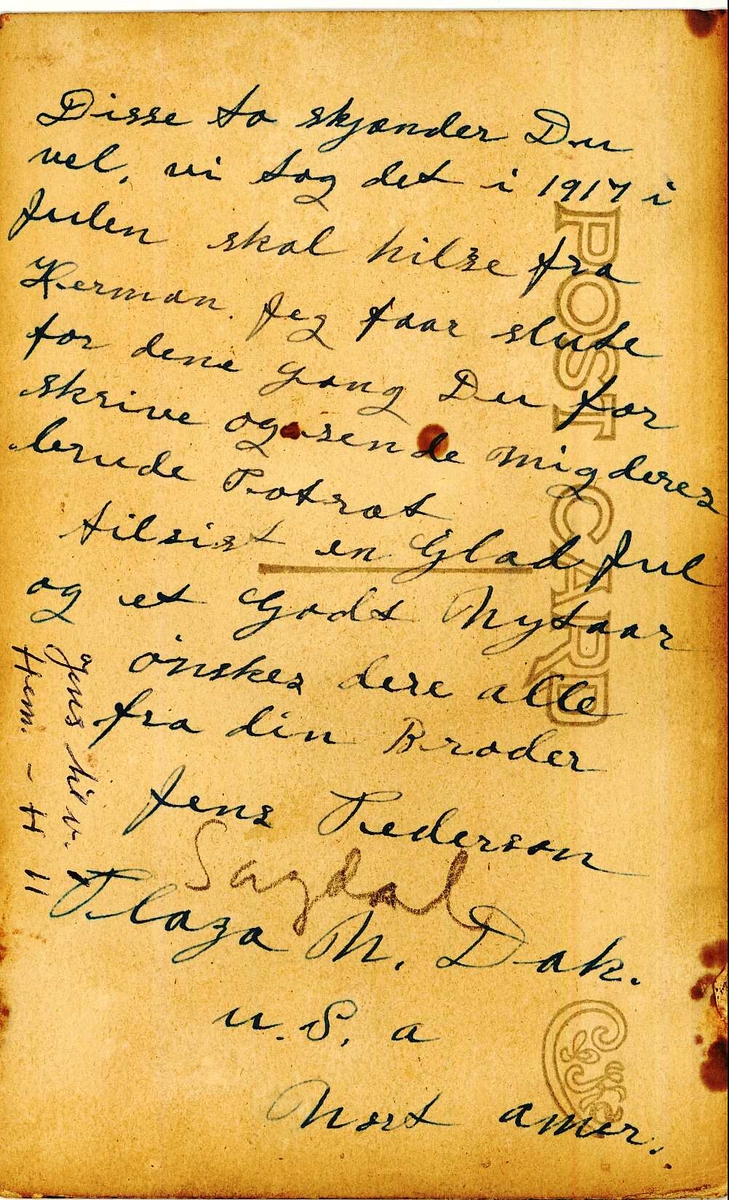 Disse to skjønder Du
vel, vi tog det i 1917 i
Julen skal hilse fra
Herman. Jeg faar slute
for dene Gang Du for
skrive og sende mig deres
brude Potræt
tilsist en Glad Jul
og et Godt Nytaar
ønskes dere alle
fra din Broder
Jens Pederson
Sagdal
Plaza N. Dak.
U.S. a
Nort amer.
Jens til v.
frem. - H
POST CARD